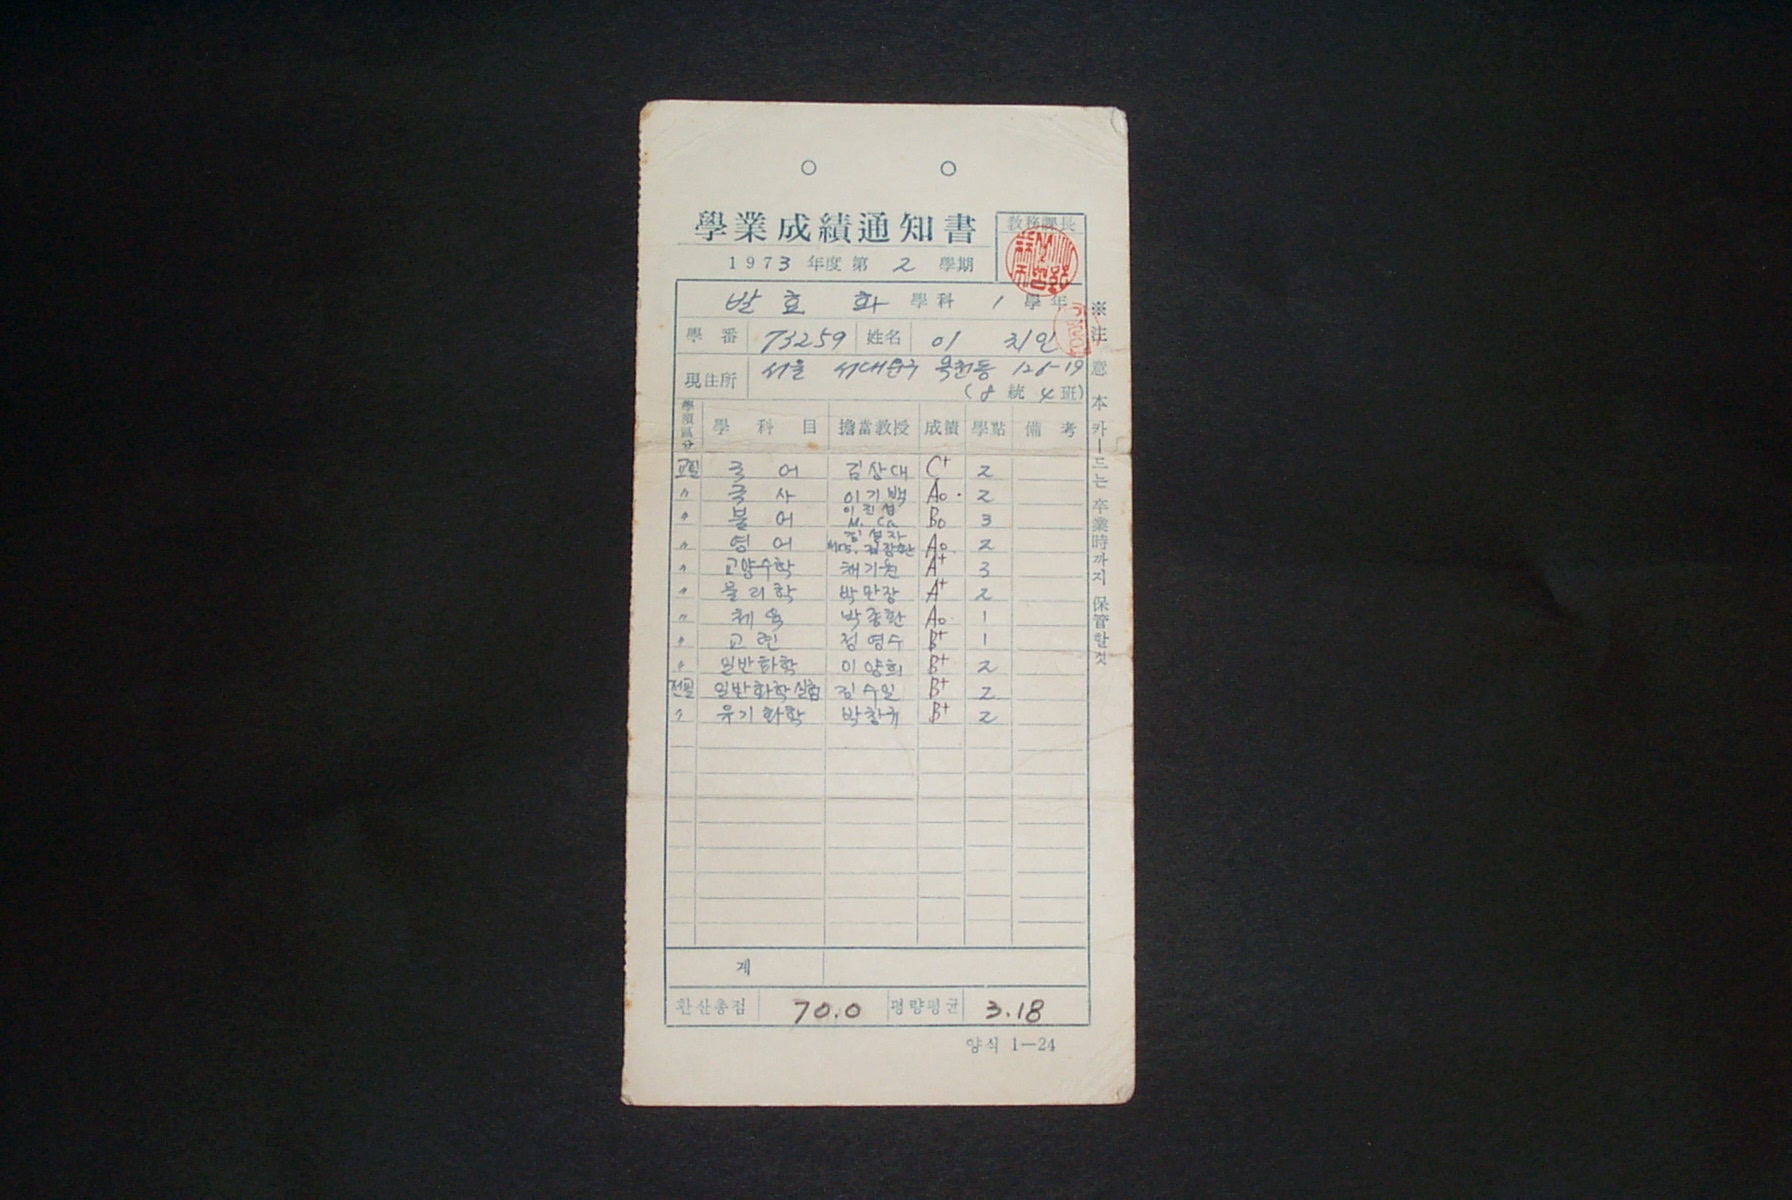 學業成績通知書
教務課長
1973 年度 第 2 學期
발효 화 學科 1 學年
學番 73259 姓名 이 치인
現住所 서울 서대문구 옥천동 126-19
(8 統 4 班)
學科目 擔當教授 成績 學點 備考
교필 국어 김상대 C+ 2
〃 국사 이기백 Ao 2
〃 불어 이진섭 M. Ca Bo 3
〃 영어 김장환 Ao 2
〃 교양수학 채기원 A+ 3
〃 물리학 박만장 A+ 2
〃 체육 박종환 Ao 1
〃 교련 정영수 B+ 1
〃 일반화학 이양희 B+ 2
전필 일반화학실험 김수일 B+ 2
〃 유기화학 박창규 B+ 2
계
환산총점 70.0 평량평균 3.18
양식 1—24
※注意 本 카ー드는 卒業時까지 保管할것